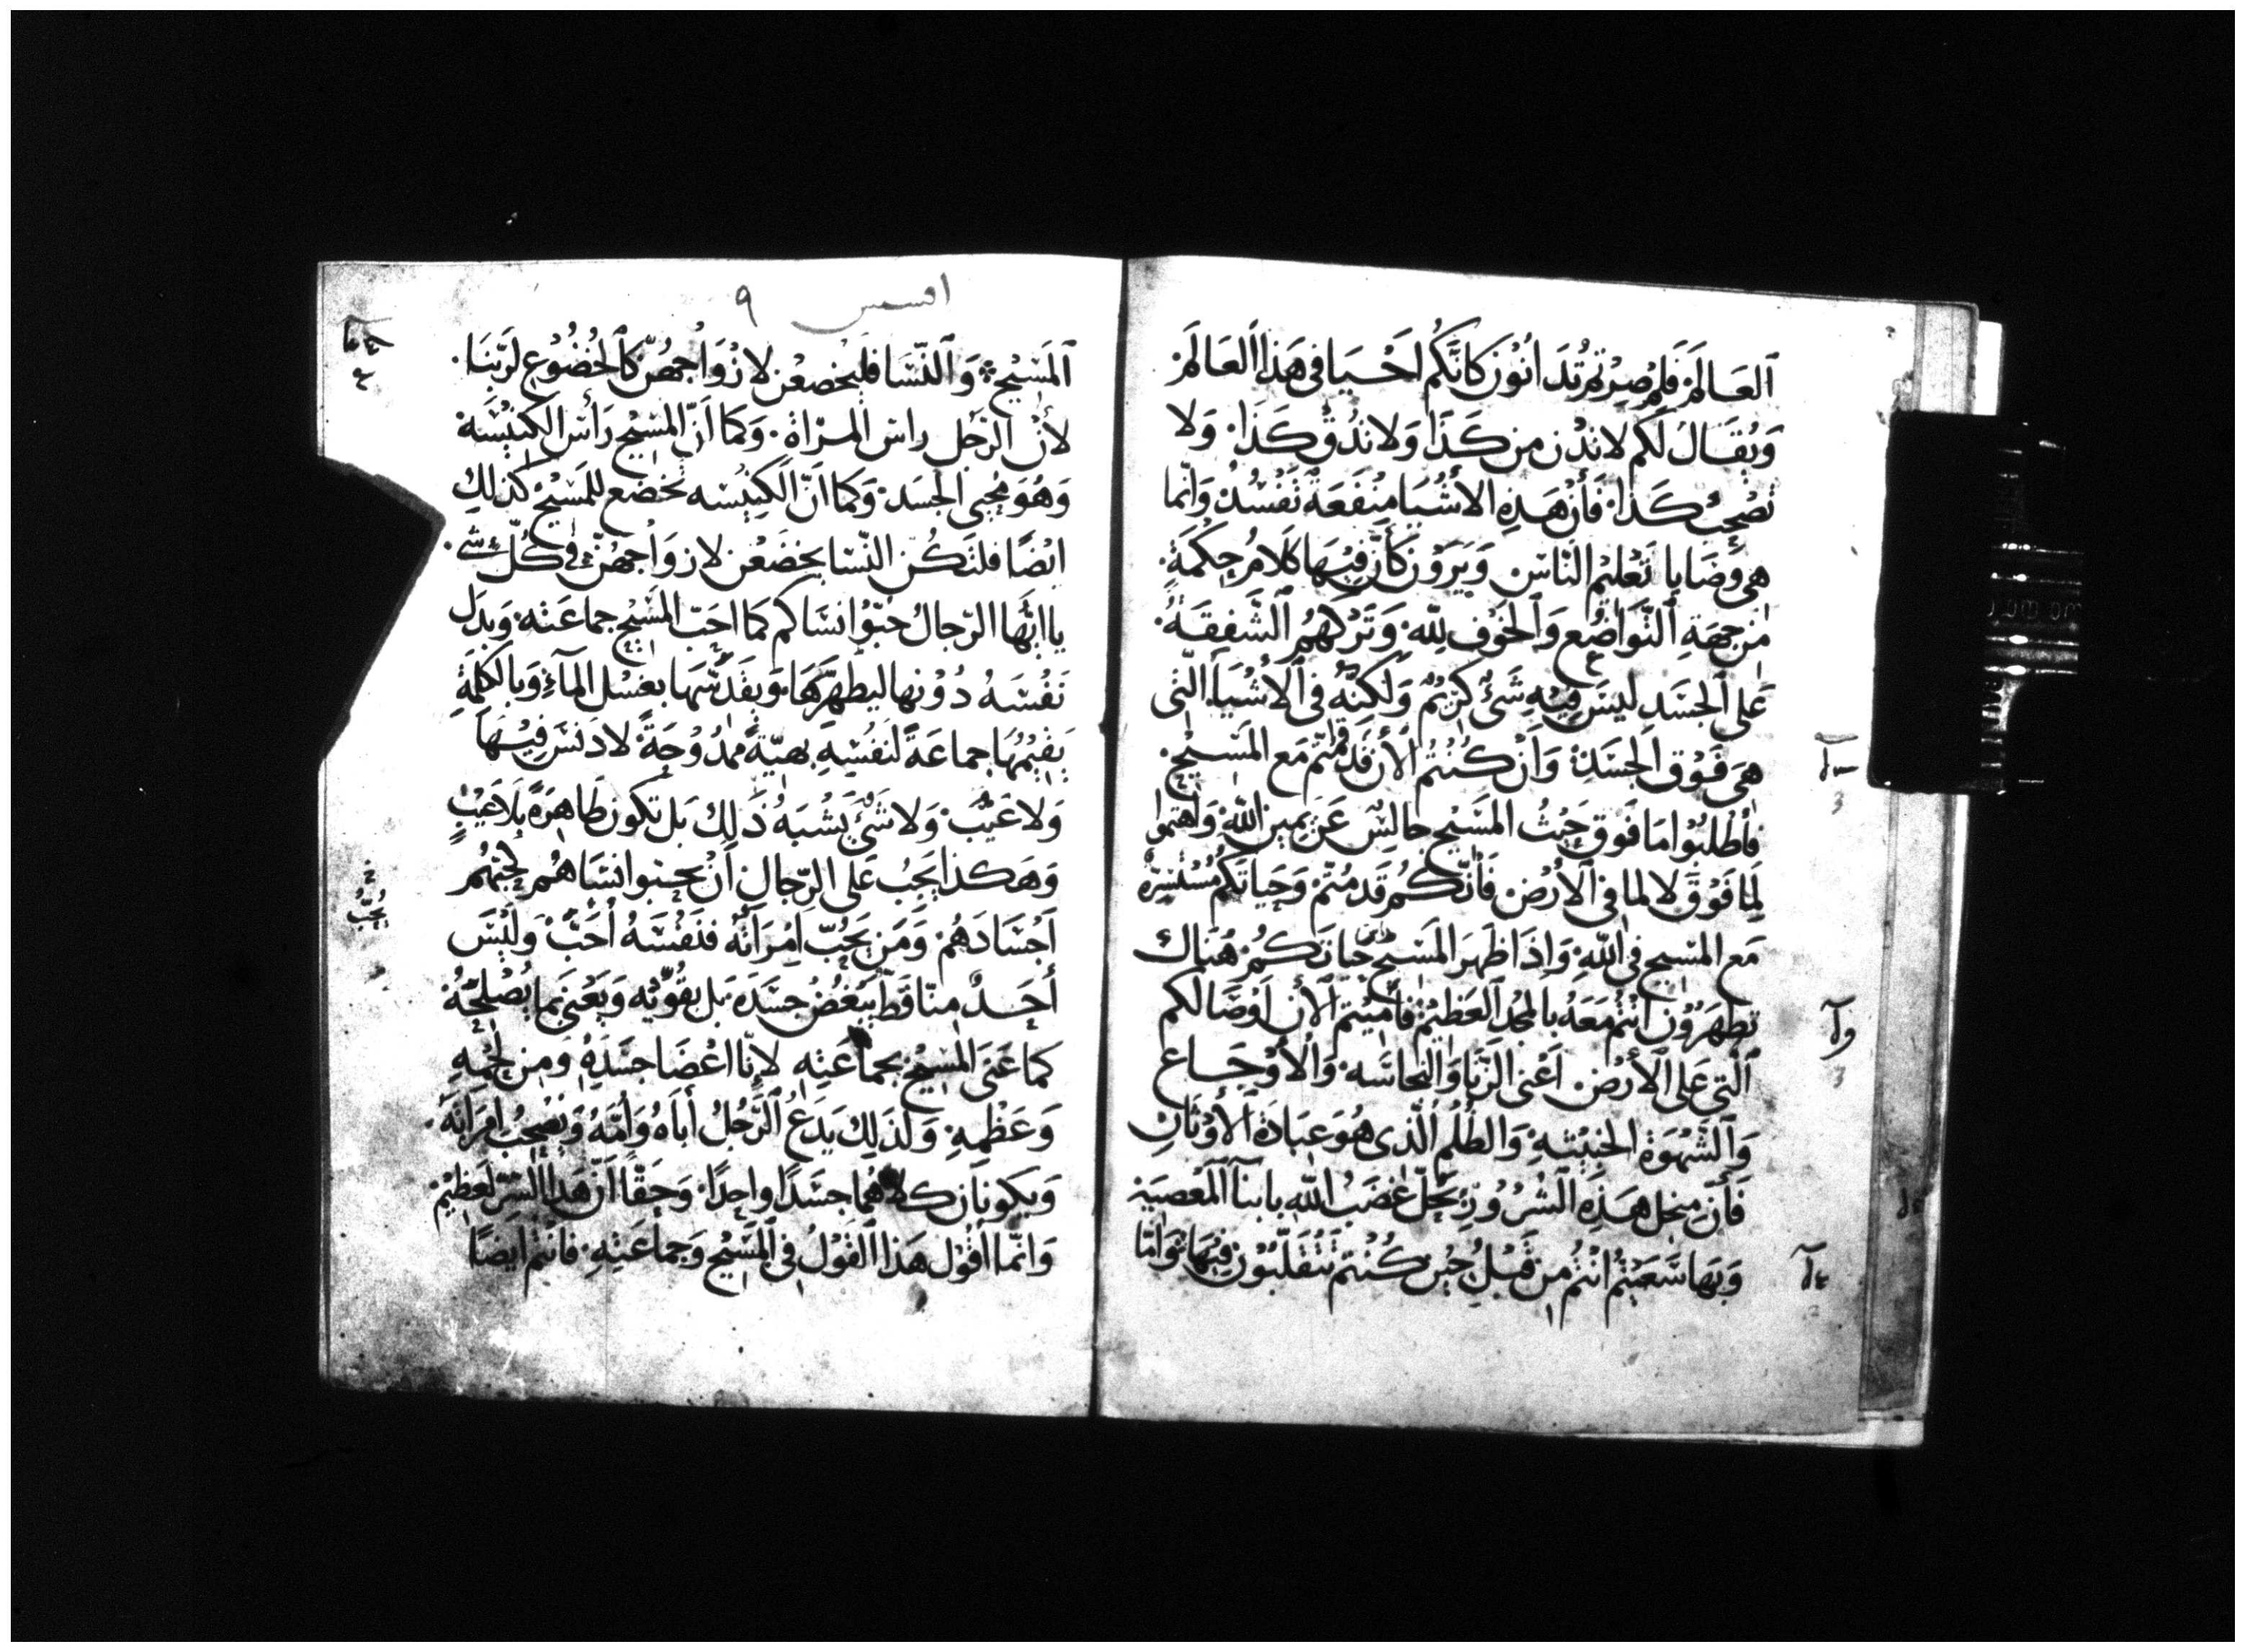 اَلعَالَمْ فَلِمْ صِرْتُمْ تُدَانُوْنَ كَانَّكُم اَحْيَا فى هَذا اَلعَالَمْ
وَيُقَالُ لَكم لا تدْن من كَذَا وَلا تدُقْ كَذَا وَلا
تصْحَبْ كَذا فَأن هَذِهِ الأشْيَا مِنْفَعَةٌ تَفْسُدْ وَانّما
هى وَصَايا تَعْليْم النَّاس وَيَرَوْن كَأنَّ فِيْهَا كَلَامُ حِكْمَةٍ
من جِهَةِ اَلتَّوَاضُع وَاَلخَوْف لِلّه وَتَرْكهُم اَلشَّفَقَةُ
عَلى اَلجَسَدِ ليسَ فِيْهِ شَئٌ كرِيْمٌ وَلَكنَّهُ فى اَلأشْيَاءَ الّتى
هىَ فَوْق اَلجَسَدِ وَأنْ كُنْتُمْ اَلأن قَدْ قُمْتُم مَع المَسِيْحِ
فَأطْلبُوْا مَا فَوق حَيْثُ المَسْيح جالِسٌ عَن يَمِين اللّهِ وَأهتموا
لِمَا فَوْقَ لا لما فى اَلأرْض فَأنَّكُم قَد مُتّمْ وَحَياتَكُم مُسْتَتِرةٌ
مَع المسْيح فى اَللّهِ وَاِذَا ظَهَرَ المَسيح حياتَكُمْ هُنَاك
تظهَرُوْن اَنْتُمْ مَعَهُ بالمجْد اَلعَظيْم فأمِيْتُم اَلأن اَوْصَالكم
اَلّتى عَلى اَلأرْض اَعْنى الزّنَا وَالنجاسَه وَاَلأوْجَاع
وَاَلشَّهْوَة الخبيْثهِ وَالظُلْم اَلّذى هُوَ عِبَادَةُ اَلأوْثَانِ
فَأنّ مِنْ اجل هَذِهِ اَلشُرُوْر يَحَّل غَضَبُ اَللّهِ بابنآ اَلمَعْصِيَةِ
وَبهَا سَعَيْتُم اَنْتُمْ من قَبْلُ حِيْنَ كُنْتم تَتَقَلّبُوْن فيْهَا وَاَمّا
افسس ٩
اَلمَسْيح وَ اَلنِّسَا فَليخضعْن لازْوَاجهُنّ كَاَلخُضُوْعِ لرَبّنَا
لأنْ الرَّجل راس المرْاة وَكما اَنّ المسْيح رَأسَ الكنيْسَه
وَهُوَ مُحيى الجَسَد وَكما اَنَّ الكَنِيْسه تخضع للمَسْيح كَذلِك
ايْضًا فلتَكُن النّسَا يخضَعْن لازوَاْجهُنّ فى كُلّ شَئ
يا ايّها الرّجالُ حبّوْا نسَاكم كمَا احَبّ المَسْيح جماعَته وَبذل
نَفْسَهُ دُوْنها ليطهّرَهَا وَيقَدّسهَا بغسْل المآءِ وَبالكلمَةِ
يَقيْمُهَا جماعَةً لنَفسِهِ بهيّةً ممدُوْحَةً لا دَنَسَ فِيْهَا
وَلا عَيْبَ وَلا شَئَ يَشْبَهُ ذَلِكَ بَل تكون طَاهِرَةً بلَا عَيْبٍ
وَهَكذَا يَجبُ عَلى الرّجالِ اَنْ يحبوا نسَاهُم كحبّهُم
اَجْسَادَهُم وَمَن يَحُبّ اِمْرَاتهُ فنَفْسَهُ اَحَبَّ وَلَيْسَ
أحَدٌ منّا قَط يبْغُضُ جسَدَهُ بَل يقُوّتِه وَيَعْنَى بما يُصْلِحُهُ
كما عَنَى المَسِيْحُ بجماعَتِهِ لاِنّا اعْضَا جسَدِهِ وَمِن لحْمِهِ
وَعَظْمِهِ وَلذَلِك يَدَعُ اَلرَّجُلُ أبَاهُ وَأمّهُ وَيَصْحِبُ امْرَاتَهُ
وَيكونَان كلاهُمَا جسَدًا واحِدًا وَحَقًّا اَنّ هَذا السّرّ لَعَظِيْمٌ
وَانّما اَقُوْل هَذا اَلقَوْلُ فى اَلمَسْيح وَجماعَتِهِ فَانْتُم ايضًا
يُحِبُّ